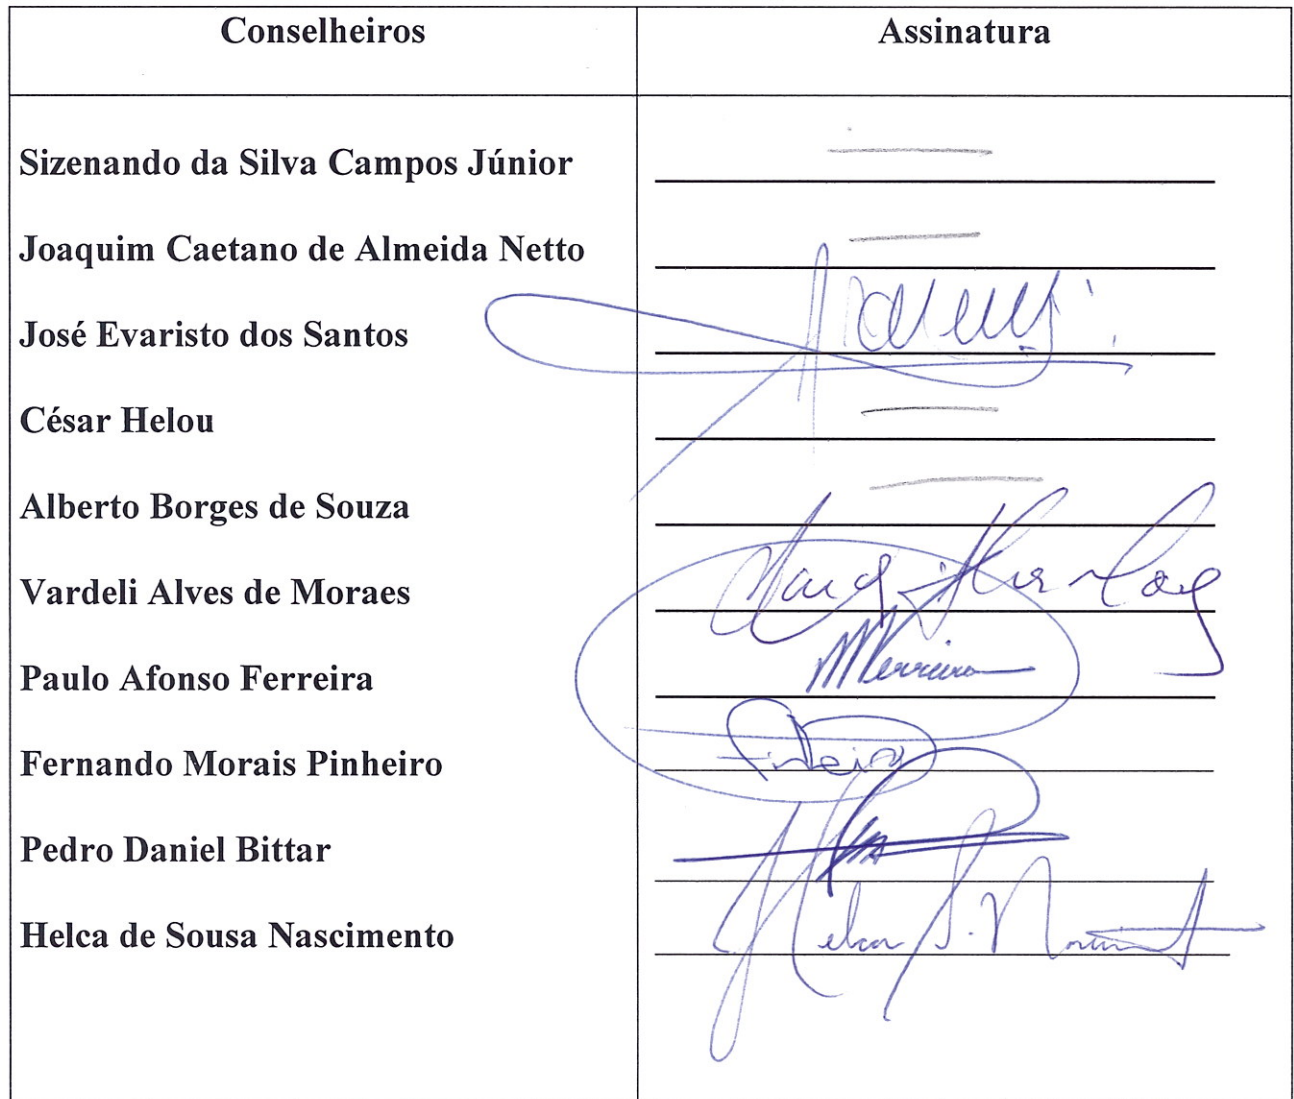 Conselheiros Assinatura
Sizenando da Silva Campos Júnior
Joaquim Caetano de Almeida Netto
José Evaristo dos Santos
César Helou
Alberto Borges de Souza
Vardeli Alves de Moraes
Paulo Afonso Ferreira
Fernando Morais Pinheiro
Pedro Daniel Bittar
Helca de Sousa Nascimento